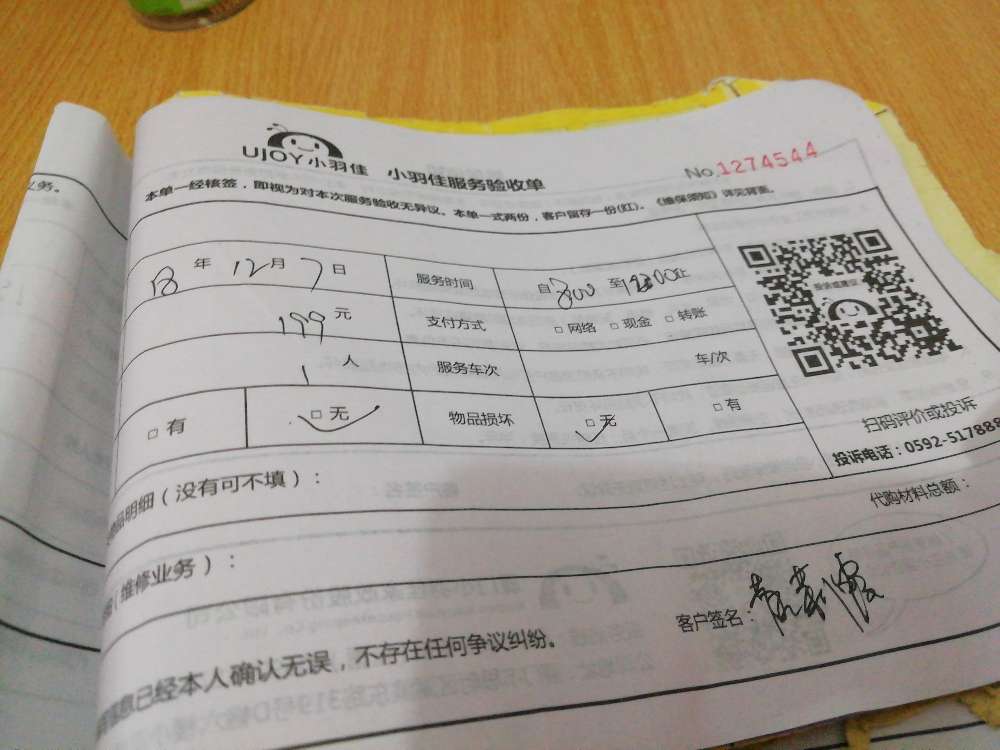 业务。
UJOY小羽佳 小羽佳服务验收单 No.1274544
本单一经核签，即视为对本次服务验收无异议。本单一式两份，客户留存一份(红)。《维保须知》详见背面。
18 年 12 月 7 日 服务时间 自 800 至 止
199 元 支付方式 □ 网络 □ 现金 □ 转账
1 人 服务车次 车/次
□ 有 □ 无 物品损坏 □ 无 □ 有
扫码评价或投诉
投诉电话：0592-517888
品明细（没有可不填）： 代购材料总额：
（维修业务）：
客户签名：
信息已经本人确认无误，不存在任何争议纠纷。